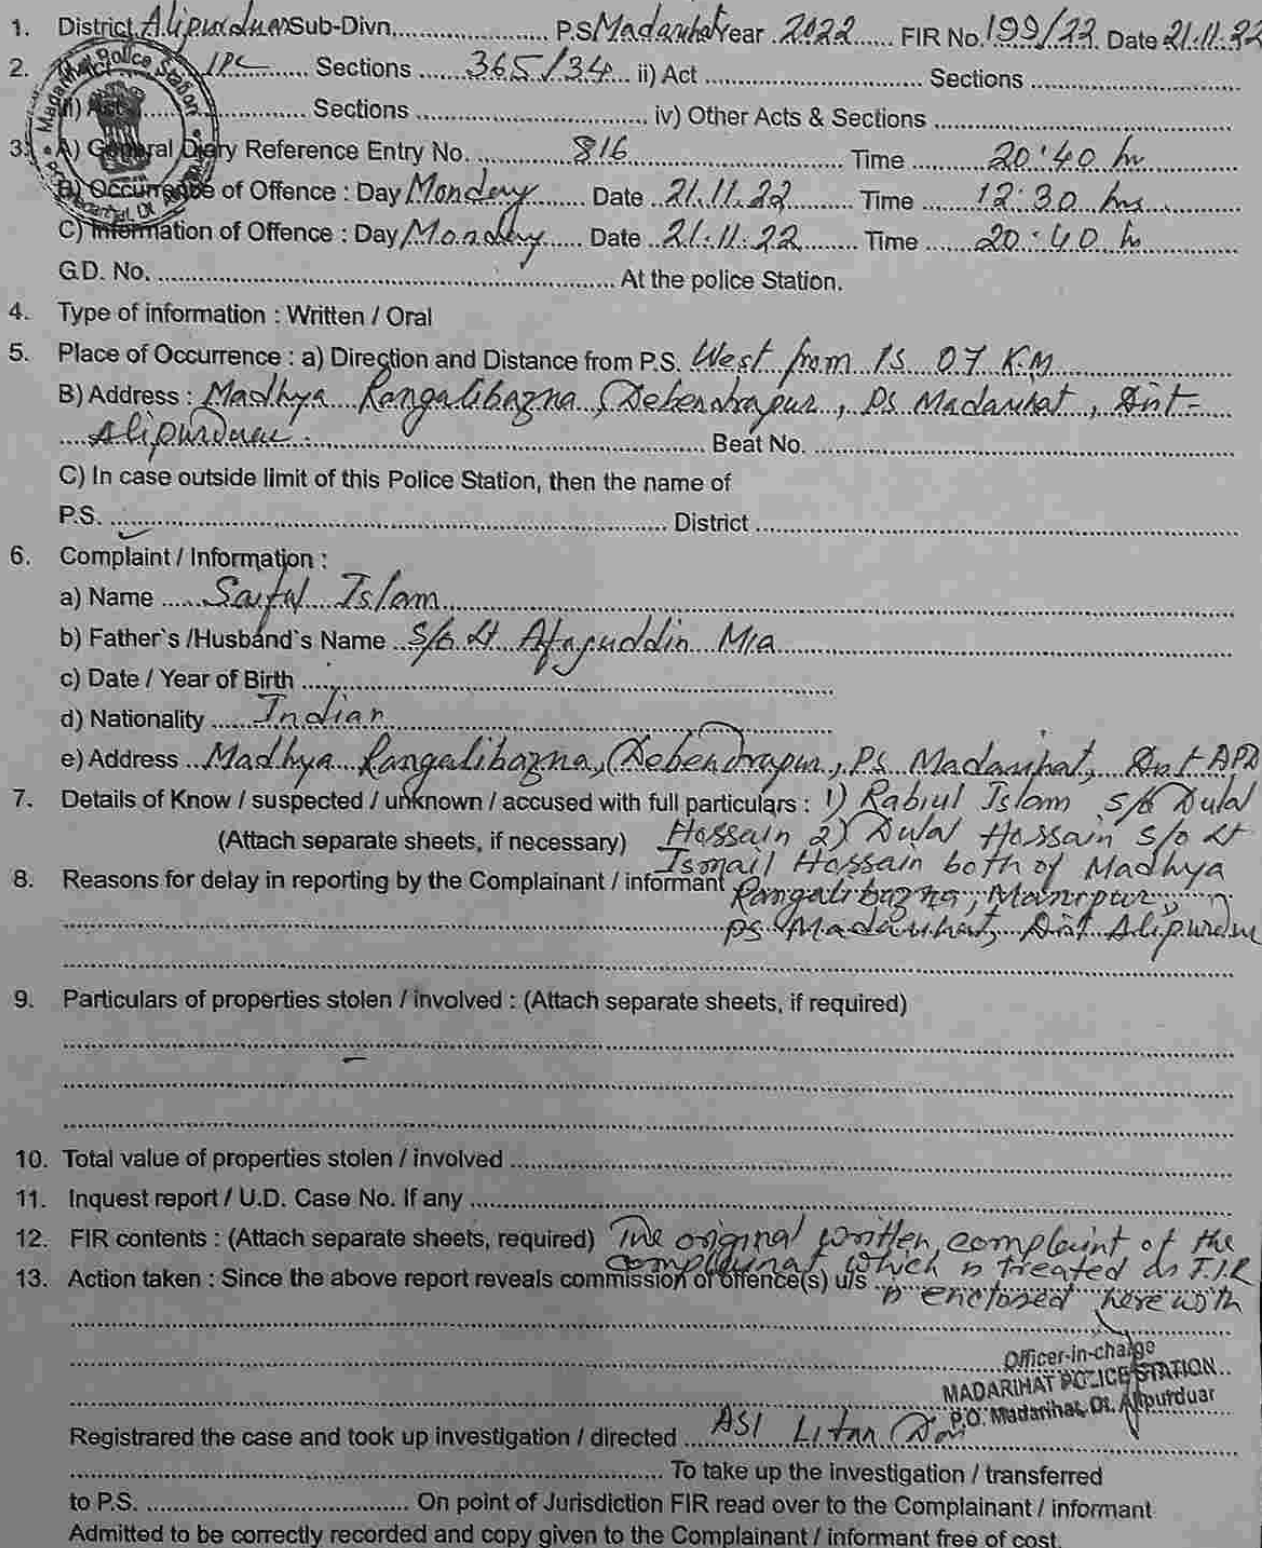 1. District Alipurduar Sub-Divn. P.S Madarihat Year 2022 FIR No. 199/22 Date 21.11.22
2. Act IPC Sections 365/34 ii) Act Sections
Sections iv) Other Acts & Sections
3. A) General Diary Reference Entry No. 816 Time 20:40 hr
B) Occurrence of Offence : Day Monday Date 21.11.22 Time 12:30 hrs
C) Information of Offence : Day Monday Date 21.11.22 Time 20:40 h
G.D. No. At the police Station.
4. Type of information : Written / Oral
5. Place of Occurrence : a) Direction and Distance from P.S. West from PS 07 K.M
B) Address : Madhya Rangalibazna, Debendrapur, PS Madarihat, Dist-
Alipurduar. Beat No.
C) In case outside limit of this Police Station, then the name of
P.S. District
6. Complaint / Information :
a) Name Saiful Islam
b) Father`s /Husband`s Name S/o Lt Afajuddin Mia
c) Date / Year of Birth
d) Nationality Indian
e) Address Madhya Rangalibazna, Debendrapur, PS Madarihat, Dist APD
7. Details of Know / suspected / unknown / accused with full particulars : 1) Rabiul Islam S/o Dulal
(Attach separate sheets, if necessary) Hossain 2) Dulal Hossain S/o Lt
Ismail Hossain both of Madhya
8. Reasons for delay in reporting by the Complainant / informant Rangalibazna,
PS Madarihat, Dist Alipurdu
9. Particulars of properties stolen / involved : (Attach separate sheets, if required)
10. Total value of properties stolen / involved
11. Inquest report / U.D. Case No. If any
12. FIR contents : (Attach separate sheets, required) The original written complaint of the
13. Action taken : Since the above report reveals commission of offence(s) u/s which is treated as F.I.R
is enclosed here with
Officer-in-charge
MADARIHAT POLICE STATION
P.O. Madarihat, Dt. Alipurduar
Registrared the case and took up investigation / directed ASI Litan Das
To take up the investigation / transferred
to P.S. On point of Jurisdiction FIR read over to the Complainant / informant
Admitted to be correctly recorded and copy given to the Complainant / informant free of cost.